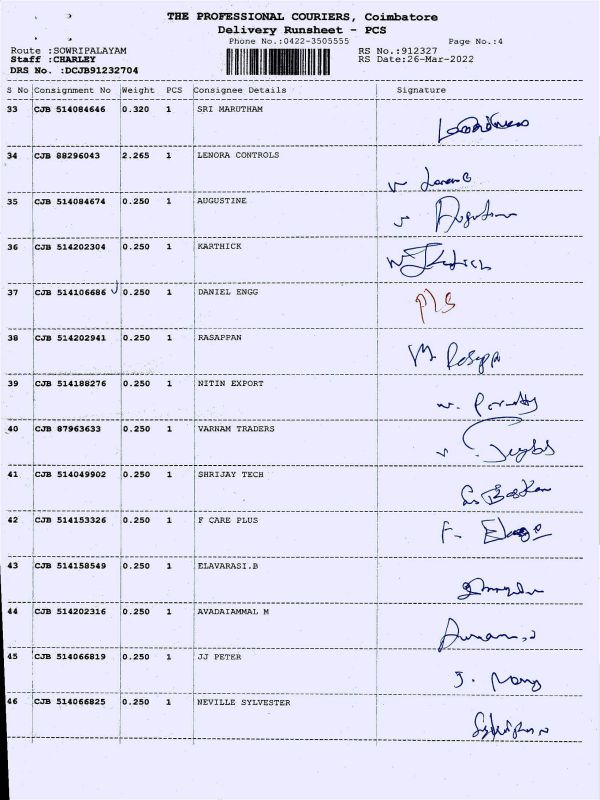 THE PROFESSIONAL COURIERS, Coimbatore
Delivery Runsheet - PCS
Phone No.:0422-3505555 Page No.:4
Route :SOWRIPALAYAM RS No.:912327
Staff :CHARLEY RS Date:26-Mar-2022
DRS No. :DCJB91232704
S No Consignment No Weight PCS Consignee Details Signature
33 CJB 514084646 0.320 1 SRI MARUTHAM
34 CJB 88296043 2.265 1 LENORA CONTROLS
35 CJB 514084674 0.250 1 AUGUSTINE
36 CJB 514202304 0.250 1 KARTHICK
37 CJB 514106686 0.250 1 DANIEL ENGG
38 CJB 514202941 0.250 1 RASAPPAN
39 CJB 514188276 0.250 1 NITIN EXPORT
40 CJB 87963633 0.250 1 VARNAM TRADERS
41 CJB 514049902 0.250 1 SHRIJAY TECH
42 CJB 514153326 0.250 1 F CARE PLUS
43 CJB 514158549 0.250 1 ELAVARASI.B
44 CJB 514202316 0.250 1 AVADAIAMMAL M
45 CJB 514066819 0.250 1 JJ PETER
46 CJB 514066825 0.250 1 NEVILLE SYLVESTER